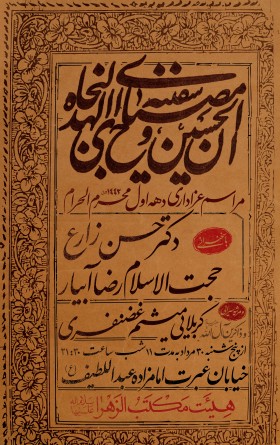 ان الحسین مصباح الهدی و سفینة النجاة
مراسم عزاداری دهه اول محرم الحرام ۱۴۴۲
با سخنرانی
دکتر حسن زارع
حجت الاسلام رضا آبیار
و ذاکرین
کربلائی میثم غضنفری
از پنجشنبه ۳۰ مرداد به مدت ۱۱ شب ساعت ۲۱:۳۰
خیابان عبرت امامزاده عبداللطیف (ع)
هیئت مکتب الزهرا